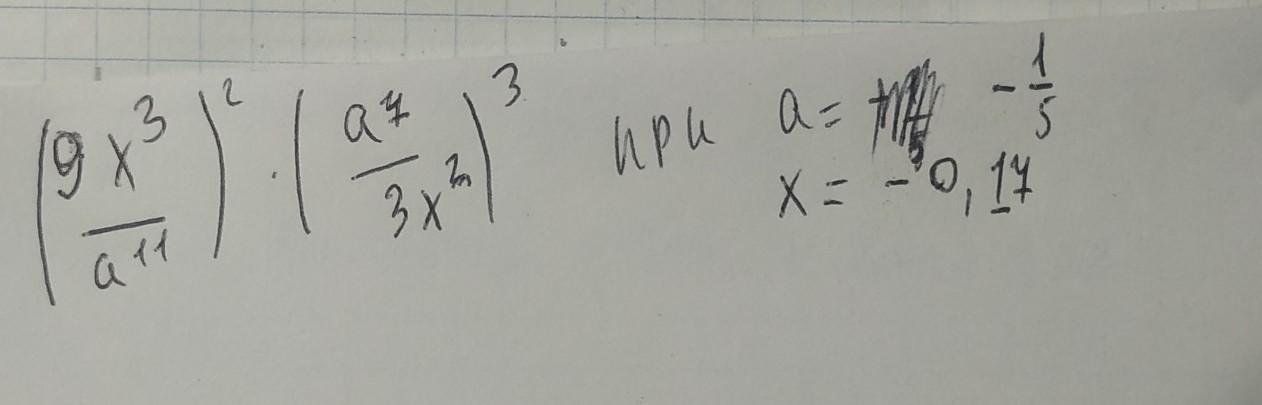 (9x³/a¹¹)² · (a⁷/3x²)³ при a = -1/5
x = -0,17